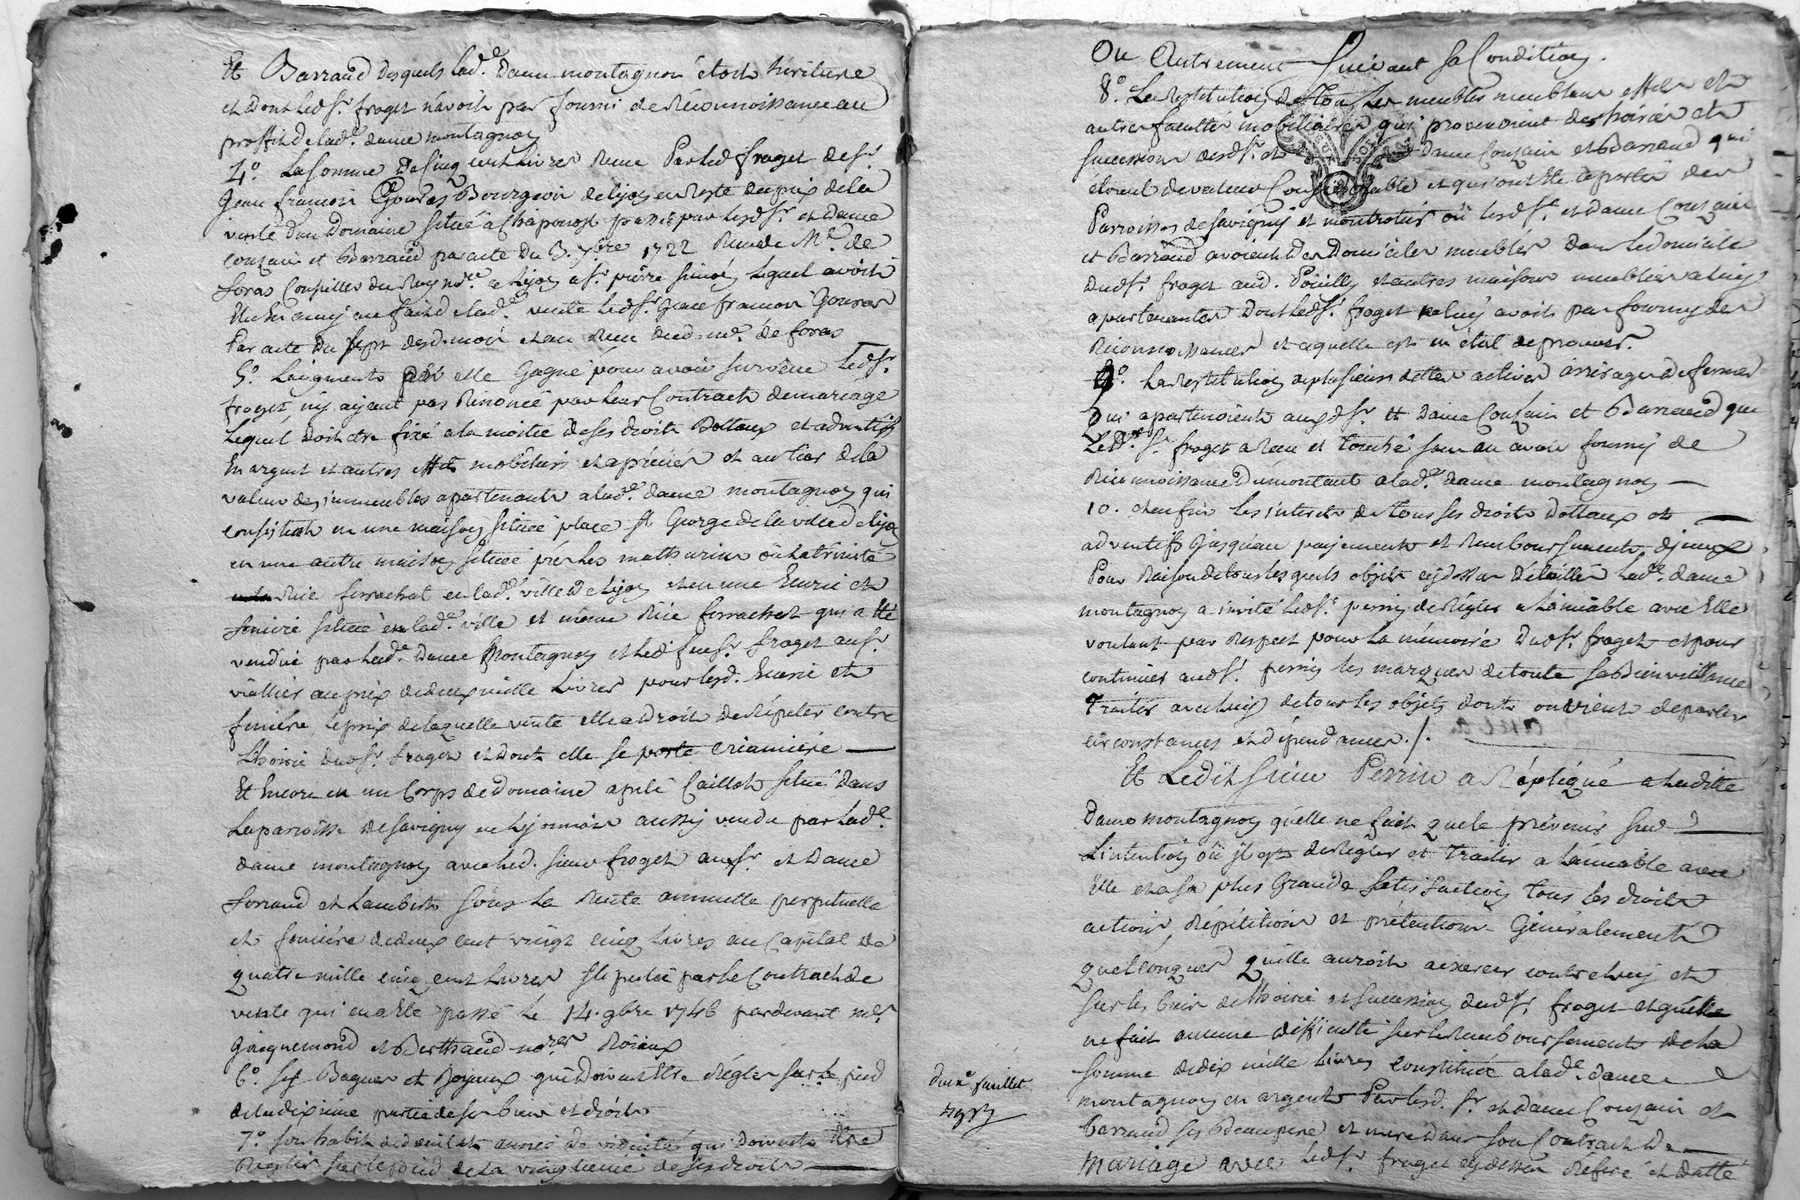 Et Barraud desquels lad.e dame montagnon étoit héritiere
et dont led.sr froget n'avoit pas fourni de Réconnoissance au
proffit de lad.e dame montagnon
4.o La somme De Cinq cent Livres Reçue Par led froget de sr.
Jean francois Gouras Bourgeois de lyon en reste du prix de la
vente d'un Domaine située a Chaponost passée par lesd.sr et Dame
Couzain et Barraud par acte du 3. 7bre 1722 Recu de M.e de
foras Conseiller du Roy no.re a lyon a sr. pierre simon lequel avoit
Elu En amy au fait de lad.e vente led.sr. Jean francois Gouras
Par acte du sept desd. mois et an Recu dud. me. de foras
5.o L'augment par elle Gagné pour avoir survécu led.sr.
froget, n'y ayant pas Renoncé par leur Contract de mariage
Lequel doit etre fixé a la moitié de ses droits Dottaux et adventifs
En argent et autres effets mobiliers et apréciés et au tier de la
valeur des immeubles apartenants a lad.e dame montagnon qui
consistent en une maison située place st George de la ville de lyon
en une autre maison située près les mathurins ou la trinité
Rue ferrachat en lad.e ville de Lyon, et en une Ecurie et
feniére située en lad.e ville et même Rüe ferrachat qui a été
vendüe par lad.e Dame Montagnon et led feu sr. froget au sr.
viallier au prix de deux mille Livres pour lesd. Ecurie et
feniére, le prix de laquelle vente elle a droit de Répéter contre
L'hoirie dud.sr. froget et dont elle se porte criancière
Et Encore en un Corps de Domaine apelé Caillot situé dans
La paroisse de Savigny en Lyonnois aussy vendu par lad.e
dame montagnon avec led. sieur froget au sr. et Dame
ferraud et Lambert Sous la Rente annuelle perpetuelle
et fonciére de deux cent vingt cinq Livres au Capital de
quatre mille cinq cent Livres stipulée par le Contract de
vente qui en a été passé le 14. 9bre 1746 pardevant mes.
Jacquemond et Berthaud no.res Roiaux
6.o ses Bagues et Joyaux qui doivent Etre Régler sur le pied
de la dixieme partie de ses biens et droits
7.o son habit de deuil et année de viduité qui doivent Etre
Réglés sur le pied de la vingtieme de ses droits
Ou Autrement Suivant sa Condition.
8.o La restitution de Tous les meubles meublans effets et
autres facultés mobiliaires qui provenoient des hoiries et
succession desd.sr. et Dame Couzain et Barraud qui
étoient de valeur Considérable et qui ont été aportés des
Parroisses de Savigny et montrotier où lesd.sr. et Dame Couzain
et Barraud avoient des Domiciles meublés dans le domicile
dud.sr. froget aud. Pöuilly et autres maisons meublées a luy
apartenantes Dont led.sr. froget n'avoit pas fourny de
Réconnoissances et a quelle est en état de prouver.
9.o La restitution de plusieurs dettes actives arrérages de fermes
Qui apartenoient auxd.sr. et Dame Couzain et Barraud que
Led. sr. froget a Recu et touché sans en avoir fourny de
Réconnoissance du montant a lad.e dame montagnon
10. et enfin les interets de tous ses droits Dottaux et
adventifs jusqu'au payement et Remboursement d'jceux
Pour Raison de tous lesquels objets cydessus Détaillés lad.e dame
montagnon a invité led.sr. perrin de Régler a L'amiable avec Elle
voulant par Respect pour la mémoire dud.sr. froget et pour
continuer aud.sr. perrin les marques de toute sa Bienveillance
Traiter avec luy de tous les objets dont on vient de parler
circonstances et dépendances ./.
Et Ledit sieur Perrin a Répliqué a ladite
Dame montagnon qu'elle ne fait que le prévenir sur
L'intention où jl est de Régler et Traiter a L'amiable avec
Elle et a sa plus Grande Satisfaction tous les droits
actions, Répétitions et prétentions Généralement
Quelconques Qu'elle auroit a exercer contre luy et
sur les biens de l'hoirie et succession dud.sr. froget et qu'elle
ne fait aucune difficulté sur le Remboursement de la
somme de dix mille Livres constituée a lad.e dame
montagnon en argent Par lesd. sr. et dame Couzain et
Barraud ses Beaupere et mere dans son Contract de
Mariage avec led.sr. froget cydessus Référé et datté
deuxe. feuillet